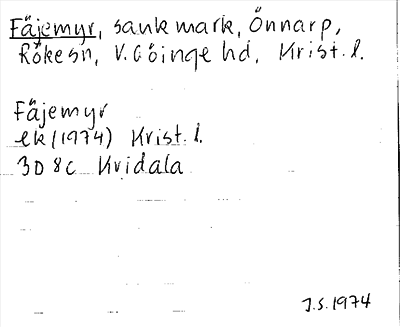 Fäjemyr, sank mark, Önnarp,
Rökesn, V. Göinge hd, Krist. l.
Fäjemyr
ek (1974) Krist. l.
3D 8c Kvidala
J.S. 1974